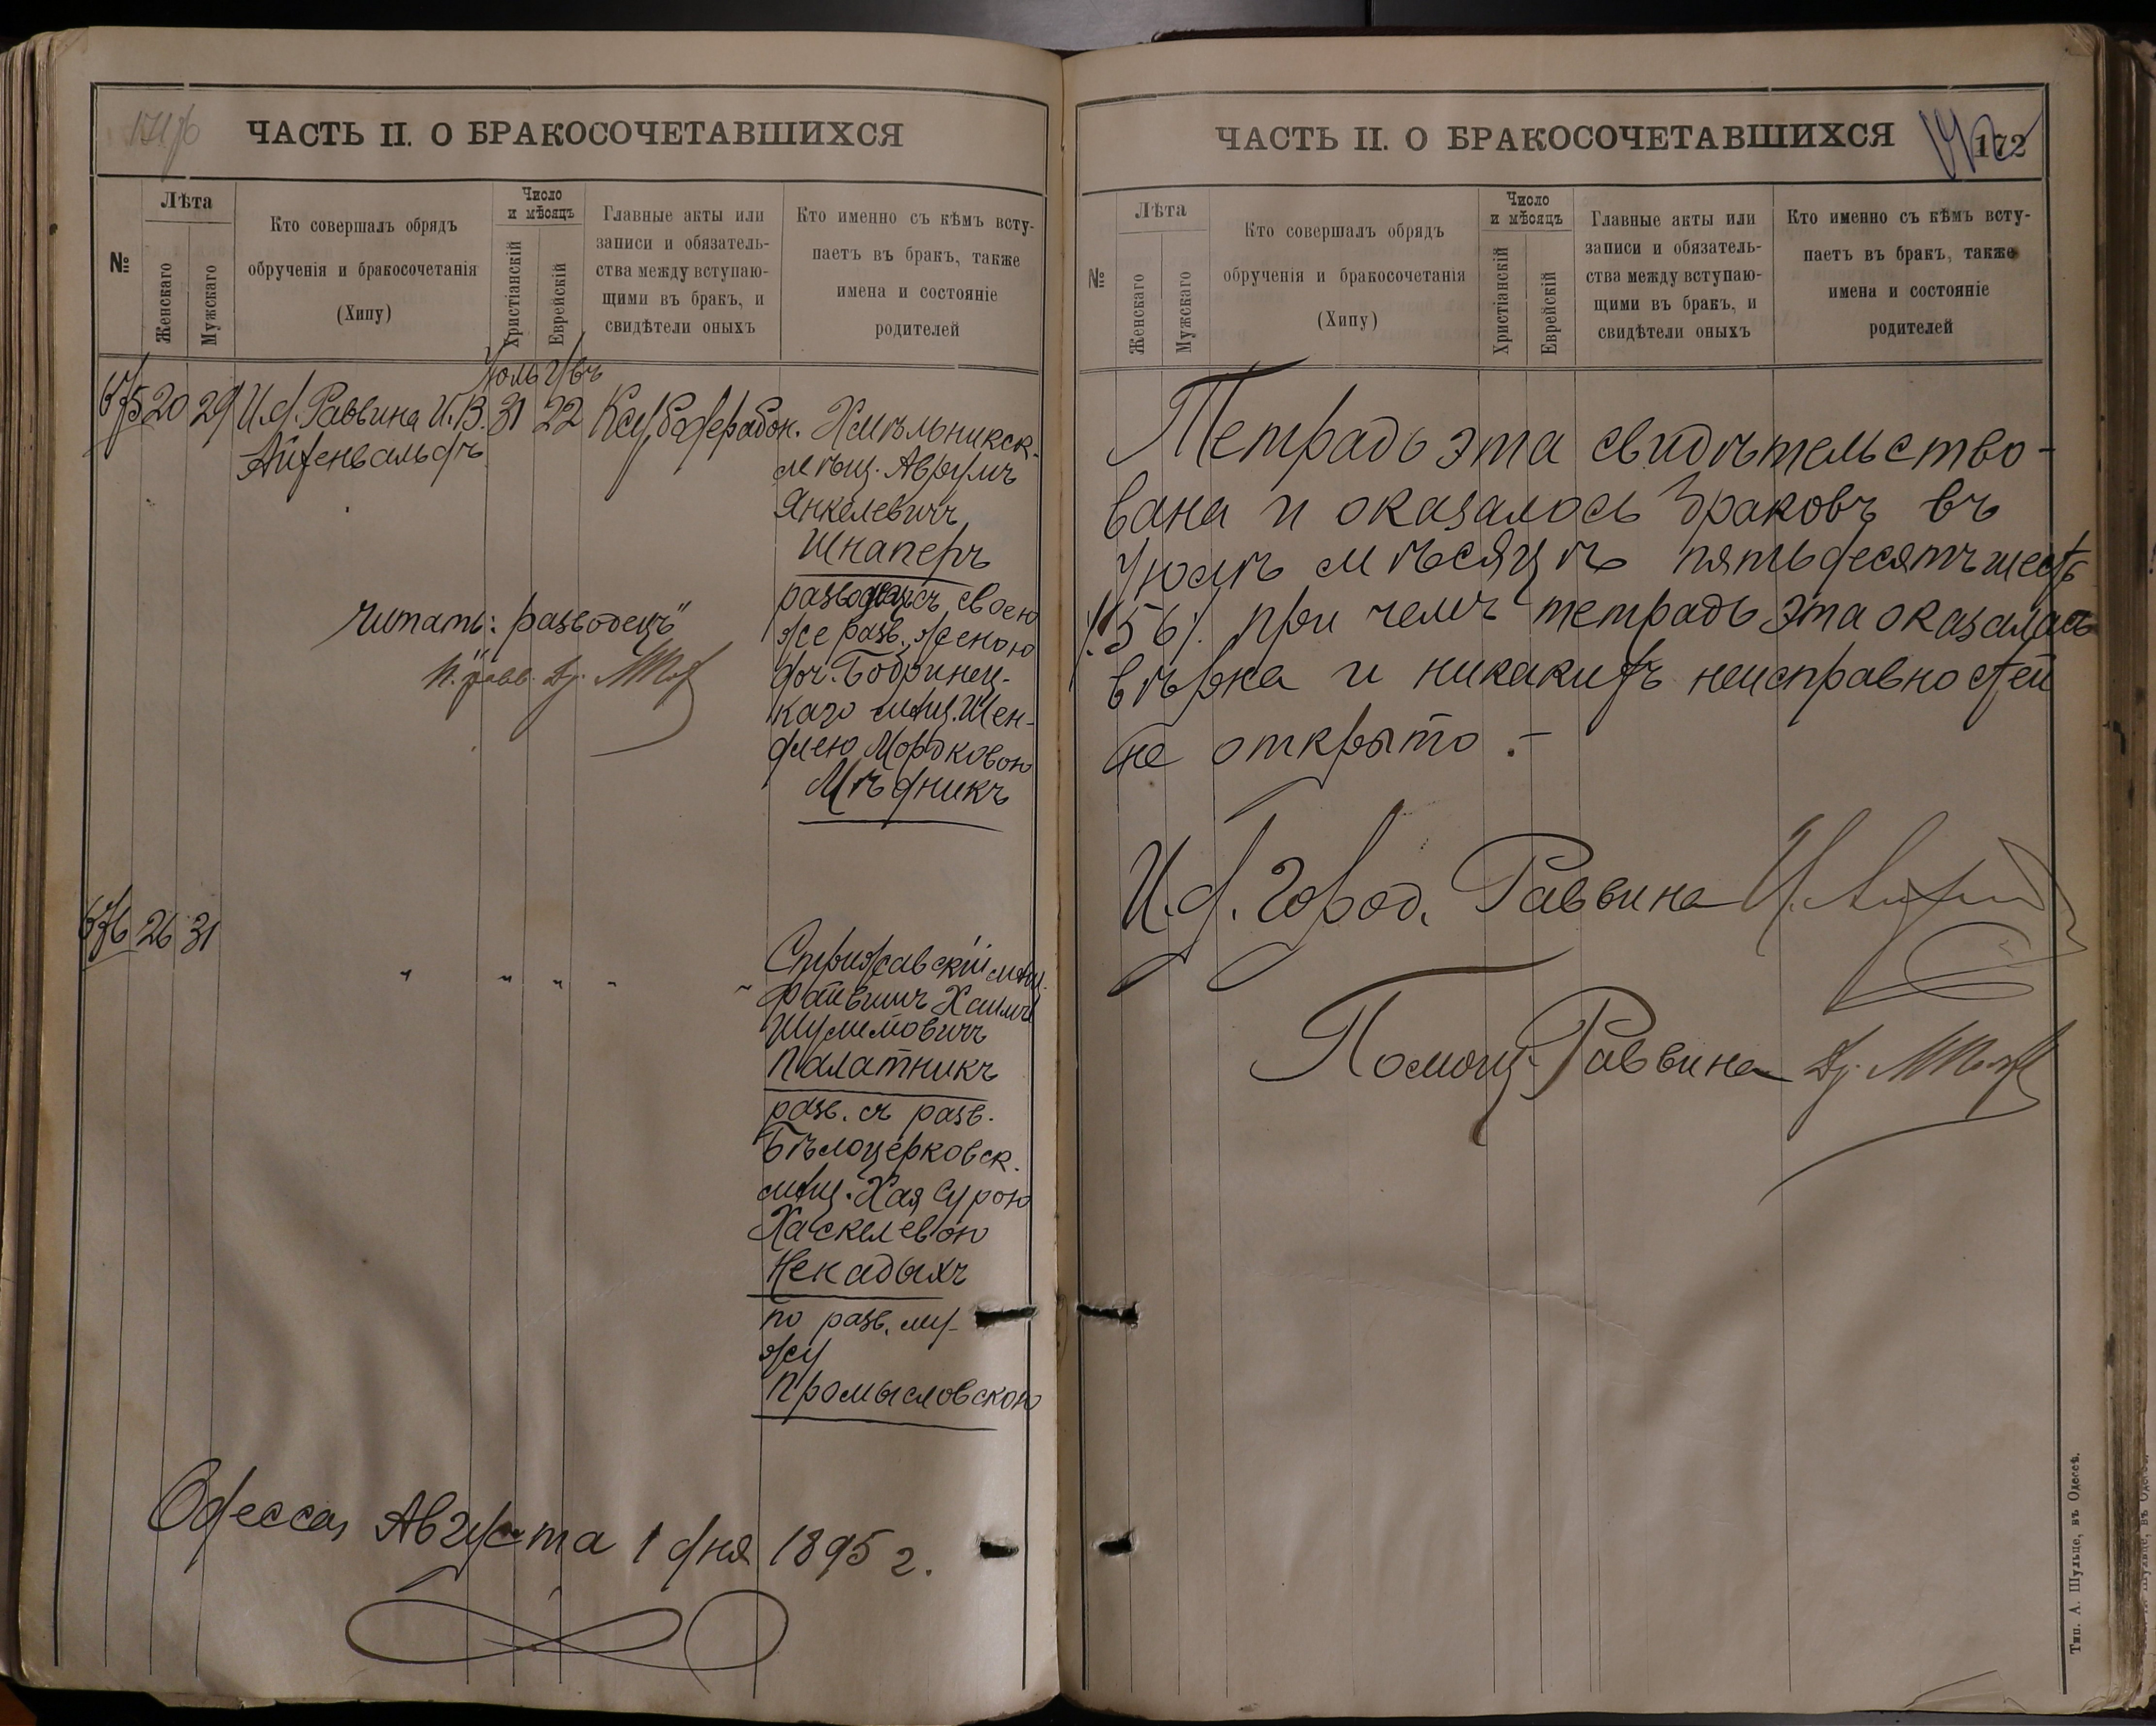 ЧАСТЬ II. О БРАКОСОЧЕТАВШИХСЯ
№
Лѣта
Женскаго
Мужскаго
Кто совершалъ обрядъ
обрученія и бракосочетанія
(Хипу)
Число
и мѣсяцъ
Христіанскій
Еврейскій
Главные акты или
записи и обязатель-
ства между вступаю-
щими въ бракъ, и
свидѣтели оныхъ
Кто именно съ кѣмъ всту-
паетъ въ бракъ, также
имена и состояніе
родителей
Юль Явъ
675 20 29 И.д. Раввина И.В. 31 22
Айзенвальдъ
Хмѣльникск.
мѣщ. Аврумъ
Янкелевичъ
Шнаперъ
съ своею
же разв. женою
доч. Бобринец-
каго мѣщ. Шен-
длею Мордковою
Мѣдникъ
Читать: "разводецъ"
П. равв. Др.
676 26 31 " " " " "
мѣщ.
Файвишъ Хаимъ
Шулимовичъ
Палатникъ
разв. съ разв.
Бѣлоцерковск.
мѣщ. Хая Сурою
Хаскелевою
Некадыхъ
по разв. му-
жу
Промысловскою
Одесса, Августа 1 дня 1895 г.
ЧАСТЬ II. О БРАКОСОЧЕТАВШИХСЯ
172
№
Лѣта
Женскаго
Мужскаго
Кто совершалъ обрядъ
обрученія и бракосочетанія
(Хипу)
Число
и мѣсяцъ
Христіанскій
Еврейскій
Главные акты или
записи и обязатель-
ства между вступаю-
щими въ бракъ, и
свидѣтели оныхъ
Кто именно съ кѣмъ всту-
паетъ въ бракъ, также
имена и состояніе
родителей
Тетрадь эта свидѣтельство-
вана и оказалось браковъ въ
Юлѣ мѣсяцѣ пятьдесятъ шесть
/.56/. при чемъ тетрадь эта оказалась
вѣрна и никакихъ неисправностей
не открыто.-
И.д. Город. Раввина
Помощ. Раввина Др.
Тип. А. Шульце, въ Одессѣ.